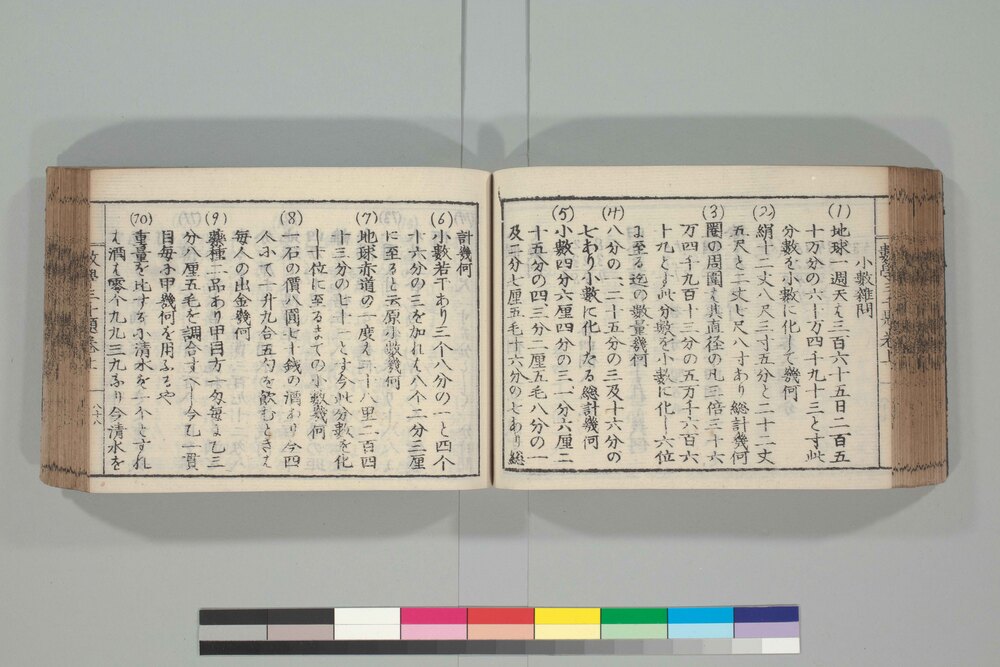 小數雜問
(1)
地球一週天は三百六十五日二百五
十万分の六十万四千九十三とす此
分數を小數に化して幾何
(2)
絹十二丈八尺三寸五分と二十二丈
五尺と二丈七尺八寸あり總計幾何
(3)
圈の周圍は其直徑の凡三倍三十六
万四千九百十三分の五万千六百六
十九とす此分數を小數に化し六位
に至る迄の數量幾何
(4)
八分の一、二十五分の三及十六分の
七あり小數に化したる總計幾何
(5)
小數四分六厘四分の三、一分六厘二
十五分の四、三分二厘五毛八分の一
及二分七厘五毛十六分の七あり總
計幾何
(6)
小數若干あり三个八分の一と四个
十六分の三を加れは八个二分三厘
に至ると云原小數幾何
(7)
地球赤道の一度は二十八里二百四
十三分の七十一とす今此分數を化
し十位に至るまての小數幾何
(8)
一石の價八圓七十錢の酒あり今四
人にて一升九合五勺を飮むときは
每人の出金幾何
(9)
藥種二品あり甲目方一匁每に乙三
分八厘五毛を調合すへし今乙一貫
目每に甲幾何を用ふるや
(10)
重量を比するに清水を一个とすれ
は酒は零个九九三九なり今清水を